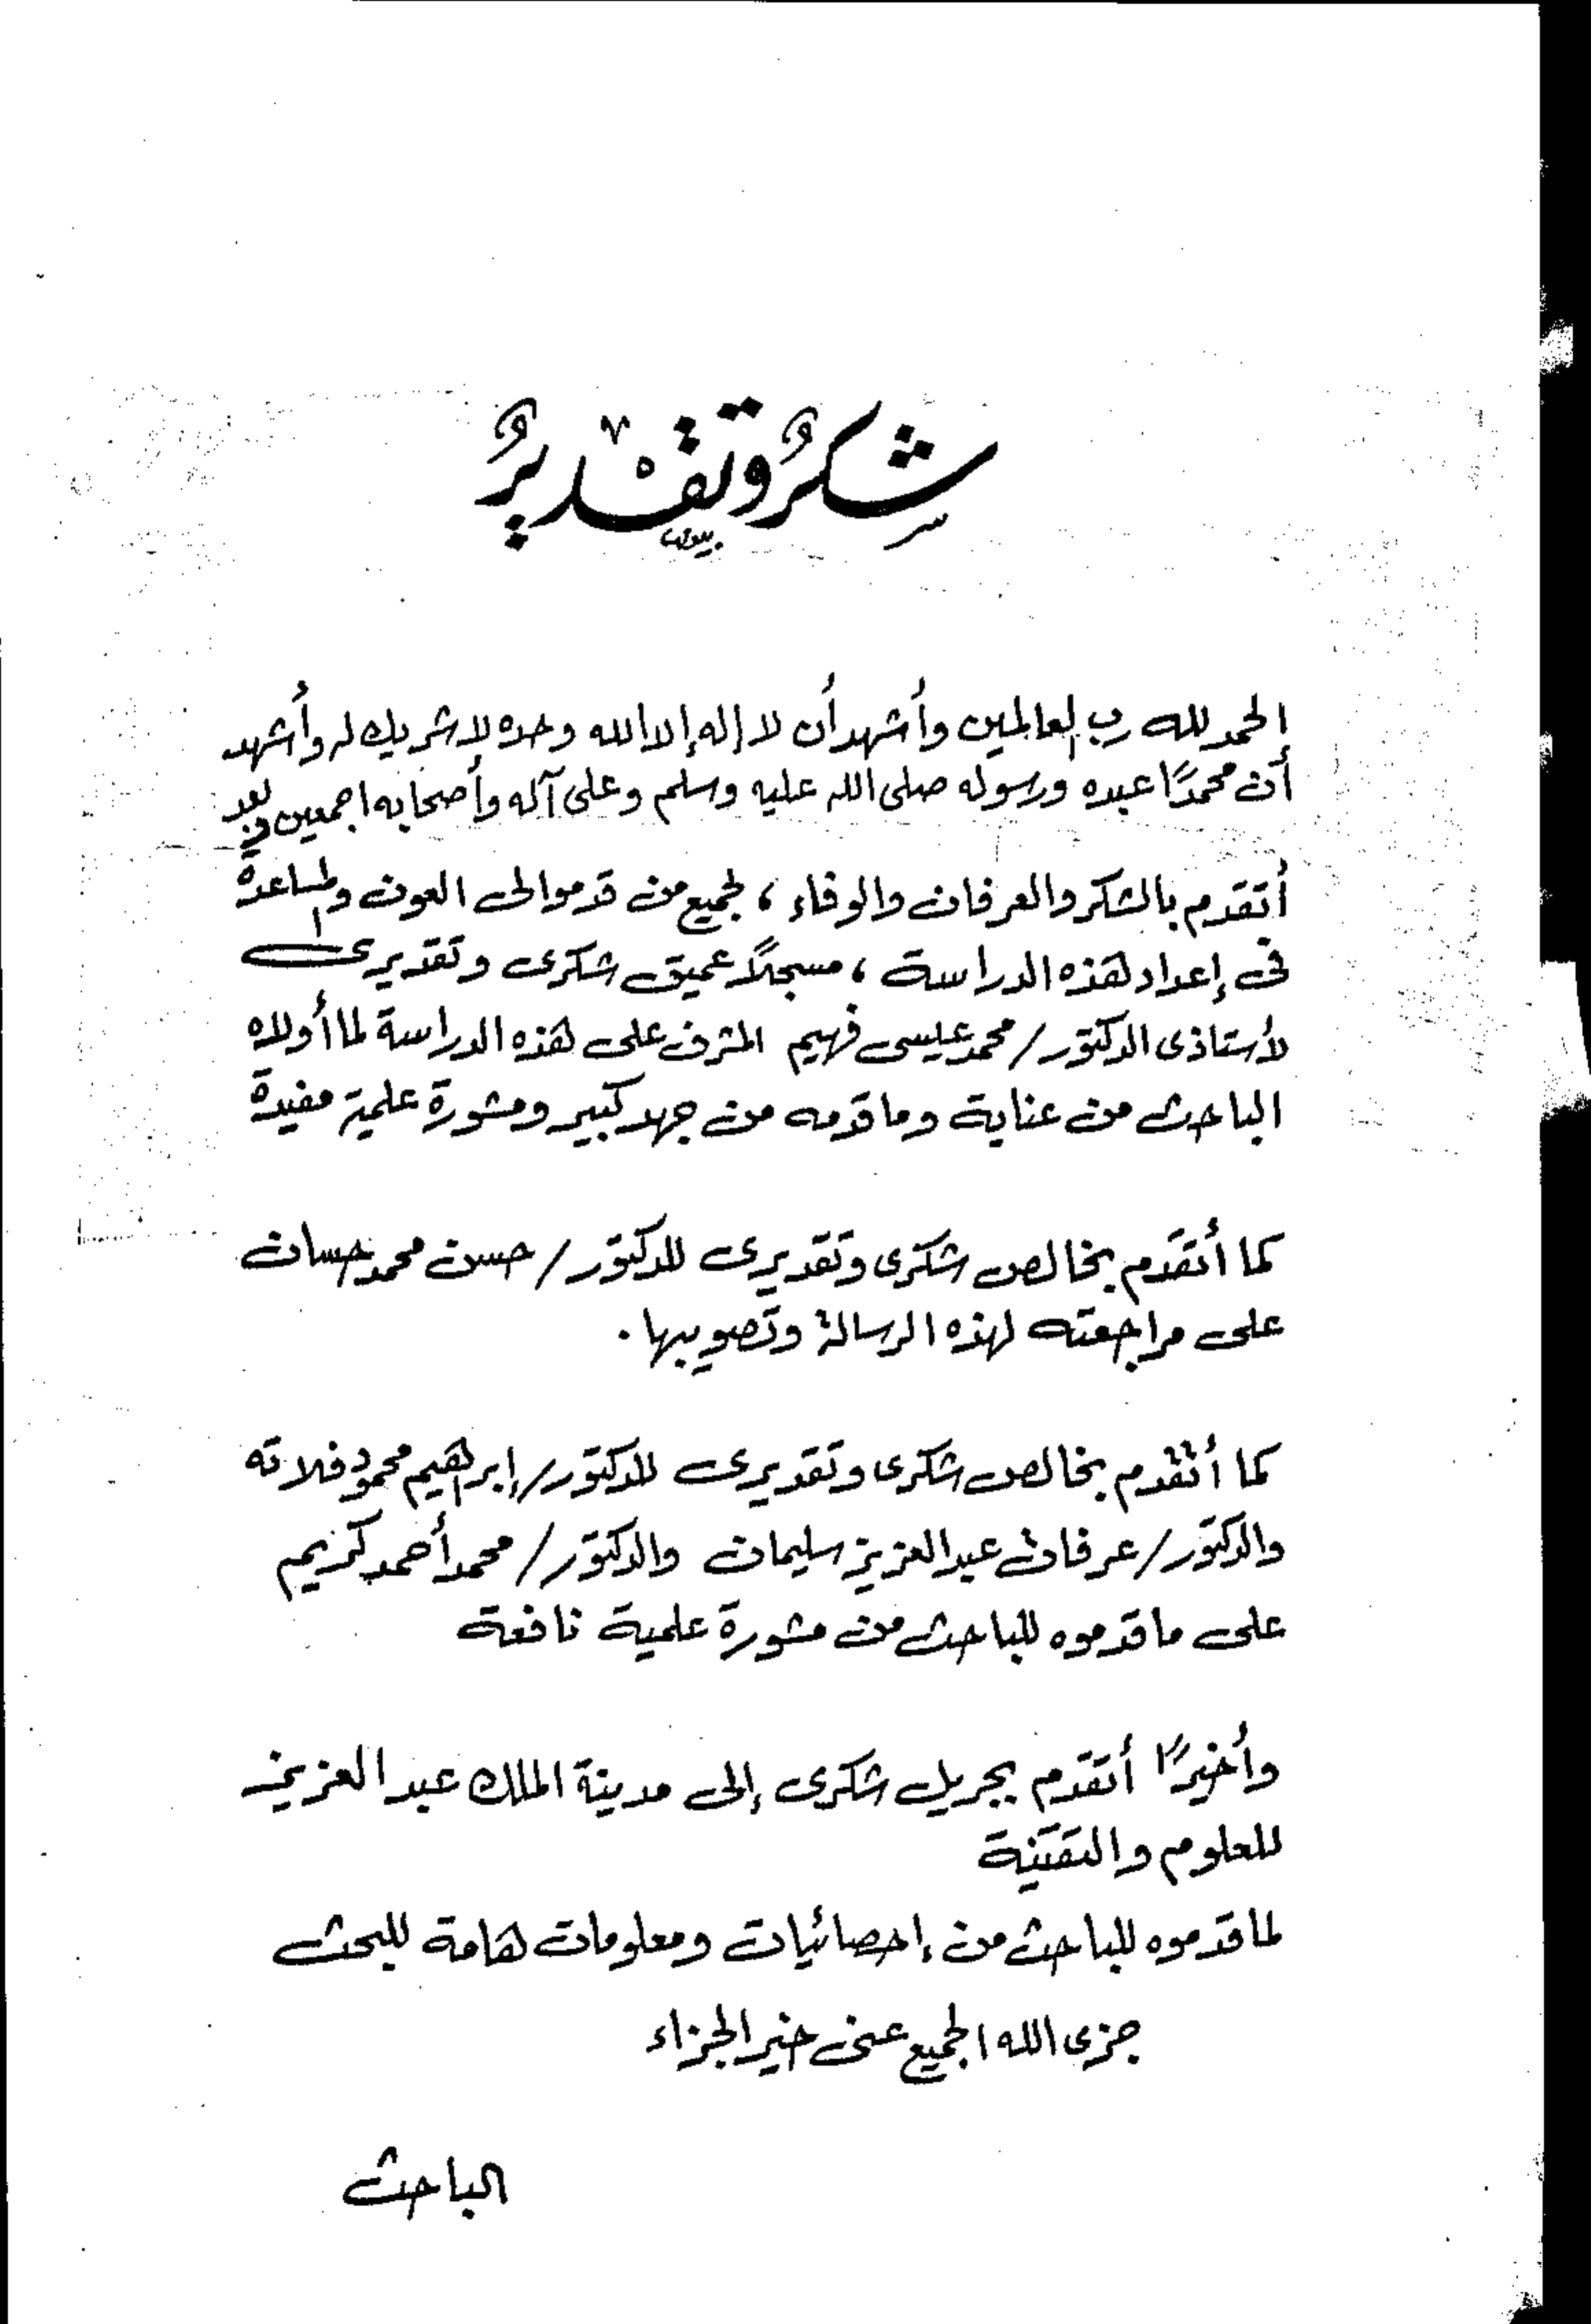 شكرٌ وتقْديرٌ
الحمد لله رب العالمين وأشهد أن لا إله إلا الله وحده لا شريك له وأشهد
أن محمدًا عبده ورسوله صلى الله عليه وسلم وعلى آله وأصحابه اجمعين وبعد
أتقدم بالشكر والعرفان والوفاء ، لجميع من قدموا لى العون والمساعدة
فى إعداد هذه الدراسة ، مسجلاً عميق شكرى وتقديرى
لأستاذى الدكتور / محمد عيسى فهيم المشرف على هذه الدراسة لما أولاه
الباحث من عناية وما قدمه من جهد كبير ومشورة علمية مفيدة
كما أتقدم بخالص شكرى وتقديرى للدكتور / حسن محمد حسان
على مراجعته لهذه الرسالة وتصويبها .
كما أتقدم بخالص شكرى وتقديرى للدكتور / إبراهيم محمود فلاته
والدكتور / عرفات عبد العزيز سليمان والدكتور / محمد أحمد كريم
على ما قدموه للباحث من مشورة علمية نافعة
وأخيرًا أتقدم بجزيل شكرى إلى مدينة الملك عبد العزيز
للعلوم والتقنية
لما قدموه للباحث من إحصائيات ومعلومات هامة للبحث
جزى الله الجميع عنى خير الجزاء
الباحث